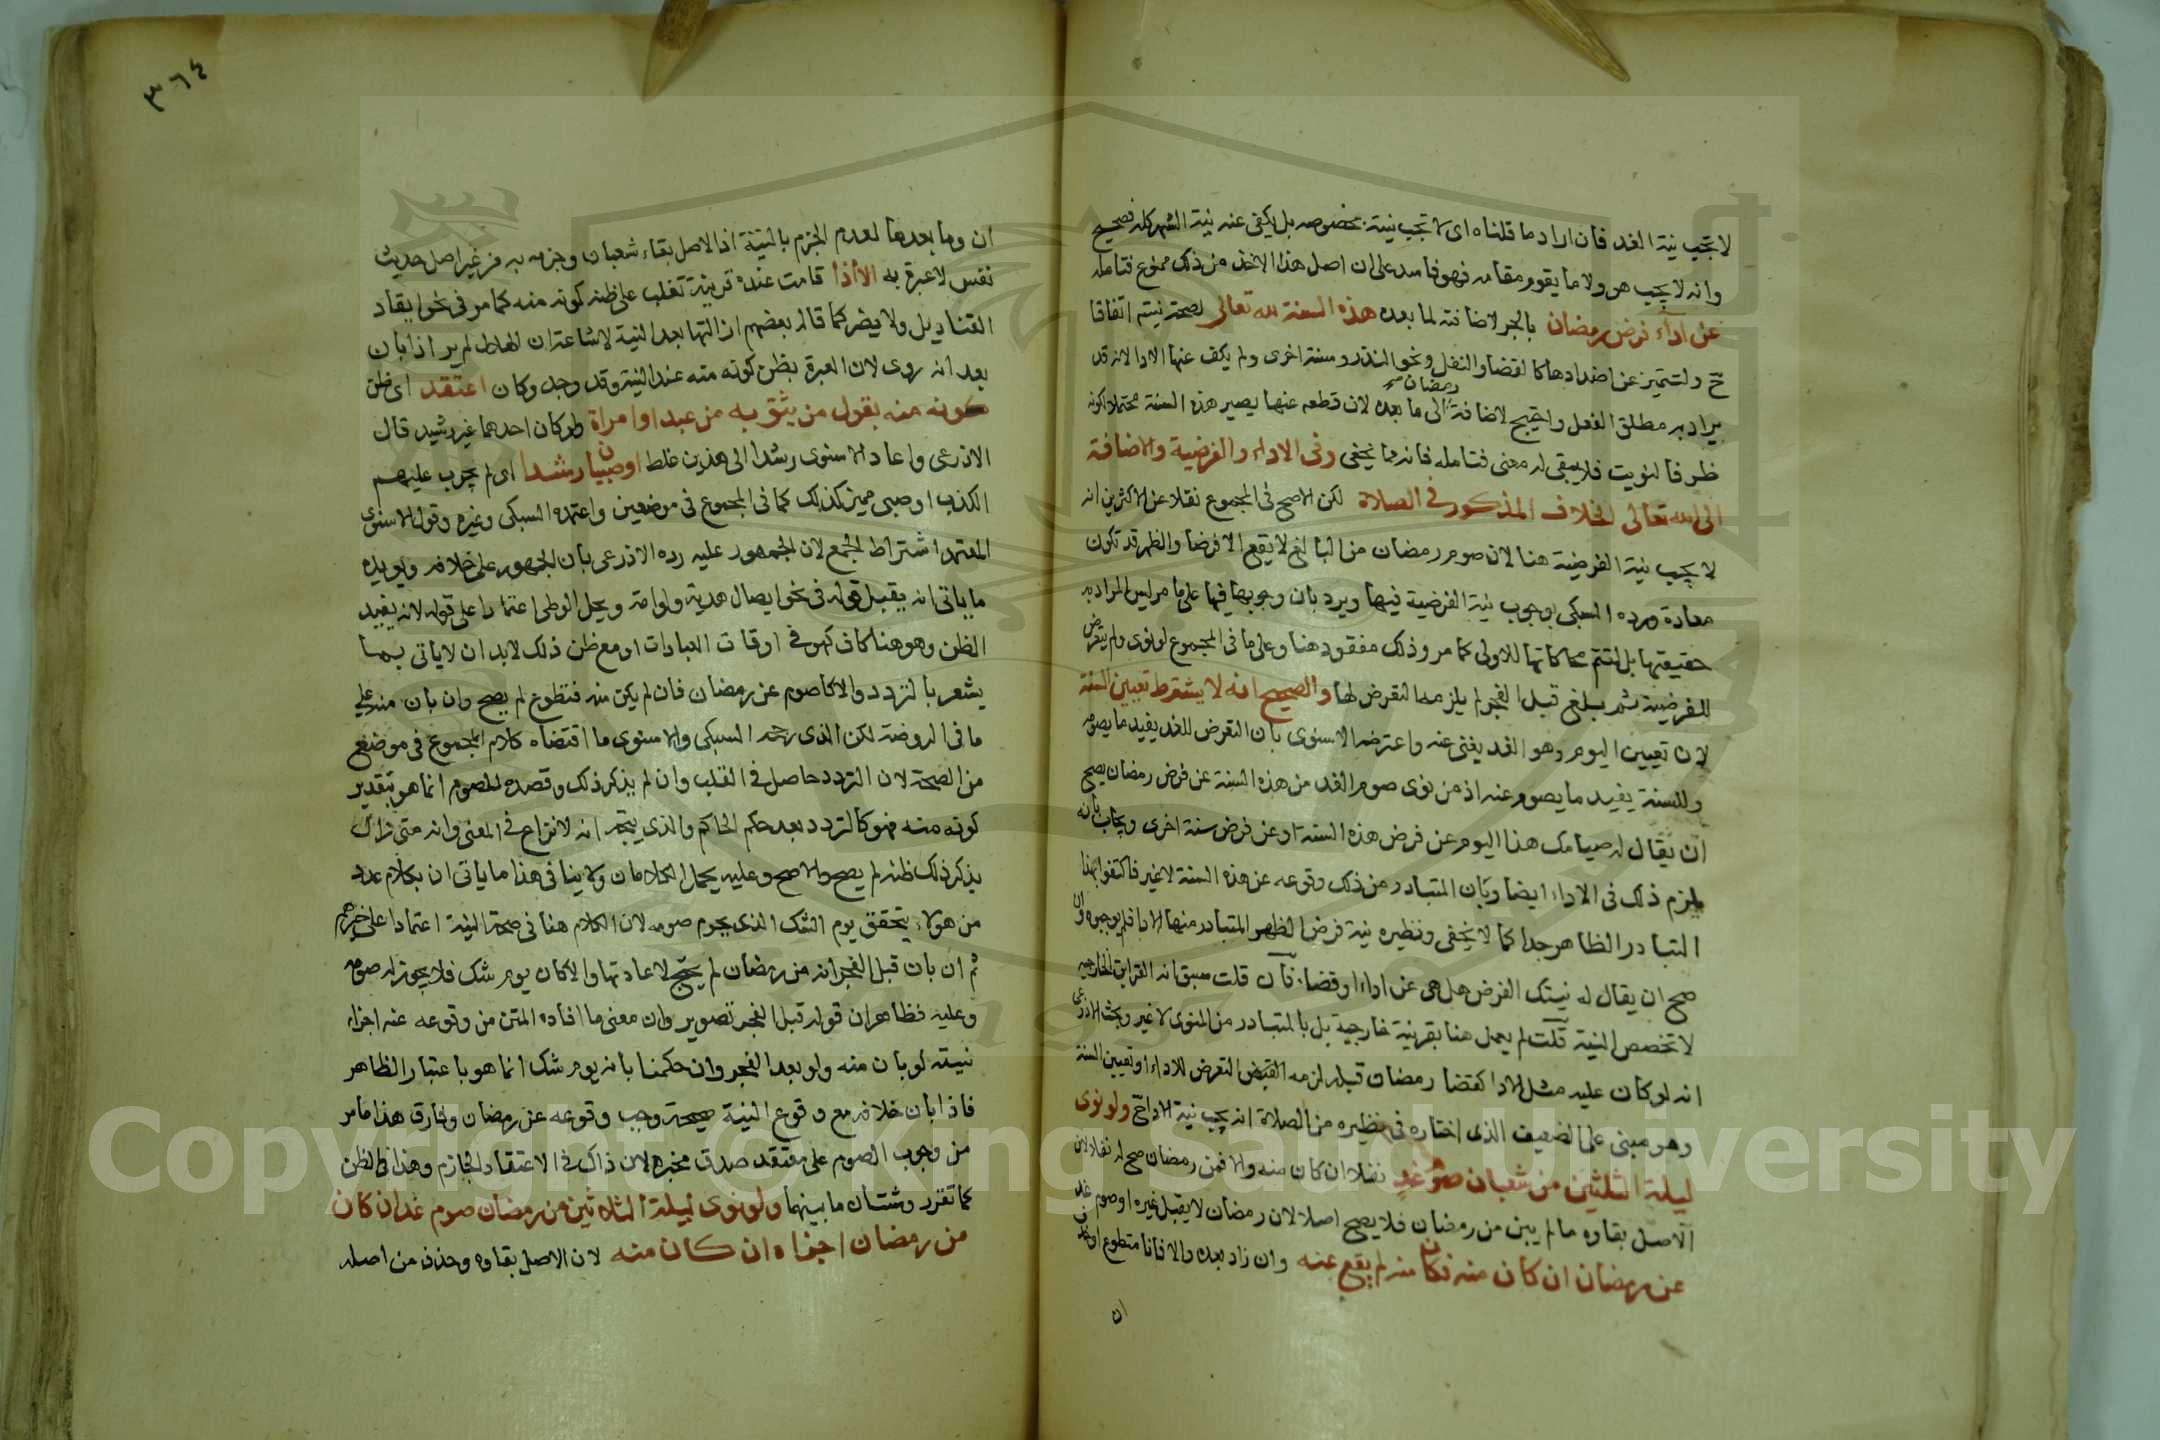 لا تجب نية الغد فان اراد ما قلناه اى لا تجب نيته بخصوصه بل يكفى عنه نية الشهر كله فصحيح
وانه لا يجب هو ولا ما يقوم مقامه فهو فاسد على ان اصل هذا الاخذ من ذلك ممنوع فتامله
عن اداء فرض رمضان بالجر لاضافته لما بعده هذه السنة لله تعالى لصحة نيته اتفاقا
ح ولتتميز عن اضدادها كالقضا والنفل ونحو النذر وسنة اخرى ولم يكف عنها الادا لانه قد
يراد به مطلق الفعل واحتيج لاضافة رمضان الى ما بعده لان قطعه عنها يصير هذه السنة محتملا لكونه
ظرفا لنويت فلا يبقى له معنى فتامله فانه مما يخفى وفى الاداء والفرضية والاضافة
الى الله تعالى الخلاف المذكور فى الصلاة لكن الاصح فى المجموع نقلا عن الاكثرين انه
لا يجب نية الفرضية هنا لان صوم رمضان من البالغ لا يقع الا فرضا والظهر قد تكون
معادة ورده السبكى بوجوب نية الفرضية فيها ويرد بان وجوبها فيها على ما مر ليس المراد به
حقيقتها بل لتتم محاكاتها للاولى كما مر وذلك مفقود هنا وعلى ما فى المجموع لو نوى ولم يتعرض
للفرضية ثم بلغ قبل الفجر لم يلزمه التعرض لها والصحيح انه لا يشترط تعيين السنة
لان تعيين اليوم وهو الغد يغنى عنه واعترضه الاسنوى بان التعرض للغد يفيد ما يصومه
وللسنة يفيد ما يصوم عنه اذ من نوى صوم الغد من هذه السنة عن فرض رمضان يصح
ان يقال له صيامك هذا اليوم عن فرض هذه السنة او عن فرض سنة اخرى ويجاب بانه
يلزم ذلك فى الاداء ايضا وبان المتبادر من ذلك وقوعه عن هذه السنة لا غير فاكتفوا بهذا
التبادر الظاهر جدا كما لا يخفى ونظيره نية فرض الظهر المتبادر منها الادا فلم يوجبوه وان
صح ان يقال له نيتك الفرض هل هى عن اداء او قضاء فان قلت سبق انه القراين الخارجيه
لا تخصص النية قلت لم يعمل هنا بقرينة خارجية بل بالمتبادر من المنوى لا غير وبحث الاذرعى
انه لو كان عليه مثل الادا كقضا رمضان قبله لزمه التعرض للاداء او تعيين السنة
وهو مبنى على الضعيف الذى اختاره فى نظيره من الصلاة انه يجب نية الادا ح ولو نوى
ليلة الثلثين من شعبان صوم غد نفلا ان كان منه والا فمن رمضان صح له نفلا لان
الاصل بقاوه ما لم يبن من رمضان فلا يصح اصلا لان رمضان لا يقبل غيره او صوم غد
عن رمضان ان كان منه فكان منه لم يقع عنه وان زاد بعده والا فانا متطوع او
ان
٣٦٤
ان وما بعدها لعدم الجزم بالنية اذ الاصل بقاء شعبان وجزمه به من غير اصل حديث
نفس لا عبرة به الا اذا قامت عنده قرينة تغلب على ظنه كونه منه كما مر فى نحو ايقاد
القناديل ولا يضر كما قاله بعضهم ازالتها بعد النية لاشاعة ان الهلال لم ير اذا بان
بعد انه روى لان العبرة بظن كونه منه عند النية وقد وجد وكان اعتقد اى ظن
كونه منه بقول من يثق به من عبد او امراة ولو كان احدهما غير رشيد قال
الاذرعى واعاد الاسنوى رشدا الى هذين غلط او صبيان رشدا اى لم يجرب عليهم
الكذب او صبى مميز كذلك كما فى المجموع فى موضعين واعتمده السبكى وغيره وقول الاسنوى
المعتمد اشتراط الجمع لان الجمهور عليه رده الاذرعى بان الجمهور على خلافه ويويده
ما ياتى انه يقبل قوله فى نحو ايصال هدية ولو امة ويحل الوطى اعتمادا على قوله لانه يفيد
الظن وهو هنا كاف كهو فى اوقات العبادات او مع ظن ذلك لابد ان لا ياتى بما
يشعر بالتردد والا كاصوم عن رمضان فان لم يكن منه فتطوع لم يصح وان بان منه على
ما فى الروضة لكن الذى رجحه السبكى والاسنوى ما اقتضاه كلام المجموع فى موضع
من الصحة لان التردد حاصل فى القلب وان لم يذكر ذلك وقصده للصوم انما هو بتقدير
كونه منه فهو كالتردد بعد حكم الحاكم والذى يتجه انه لا نزاع فى المعنى وانه متى زال
بذكر ذلك ظنه لم يصح والا صح وعليه يحمل الكلامان ولا ينافى هذا ما ياتى ان بكلام عدد
من هولاء يتحقق يوم الشك الذى يحرم صومه لان الكلام هنا فى صحة النية اعتمادا على خبرهم
ثم ان بان قبل الفجر انه من رمضان لم يحتج لاعادتها والا كان يوم شك فلا يجوز له صومه
وعليه فظاهر ان قوله قبل الفجر تصوير وان معنى ما افاده المتن من وقوعه عنه اجزاء
نيته لو بان منه ولو بعد الفجر وان حكمنا بانه يوم شك انما هو باعتبار الظاهر
فاذا بان خلافه مع وقوع النية صحيحة وجب وقوعه عن رمضان وفارق هذا ما مر
من وجوب الصوم على معتقد صدق مخبره لان ذاك فى الاعتقاد الجازم وهذا فى الظن
كما تقرر وشتان ما بينهما ولو نوى ليلة الثلاثين من رمضان صوم غد ان كان
من رمضان اجزاه ان كان منه لان الاصل بقاوه وحذف من اصله
Copyright © King Saud University